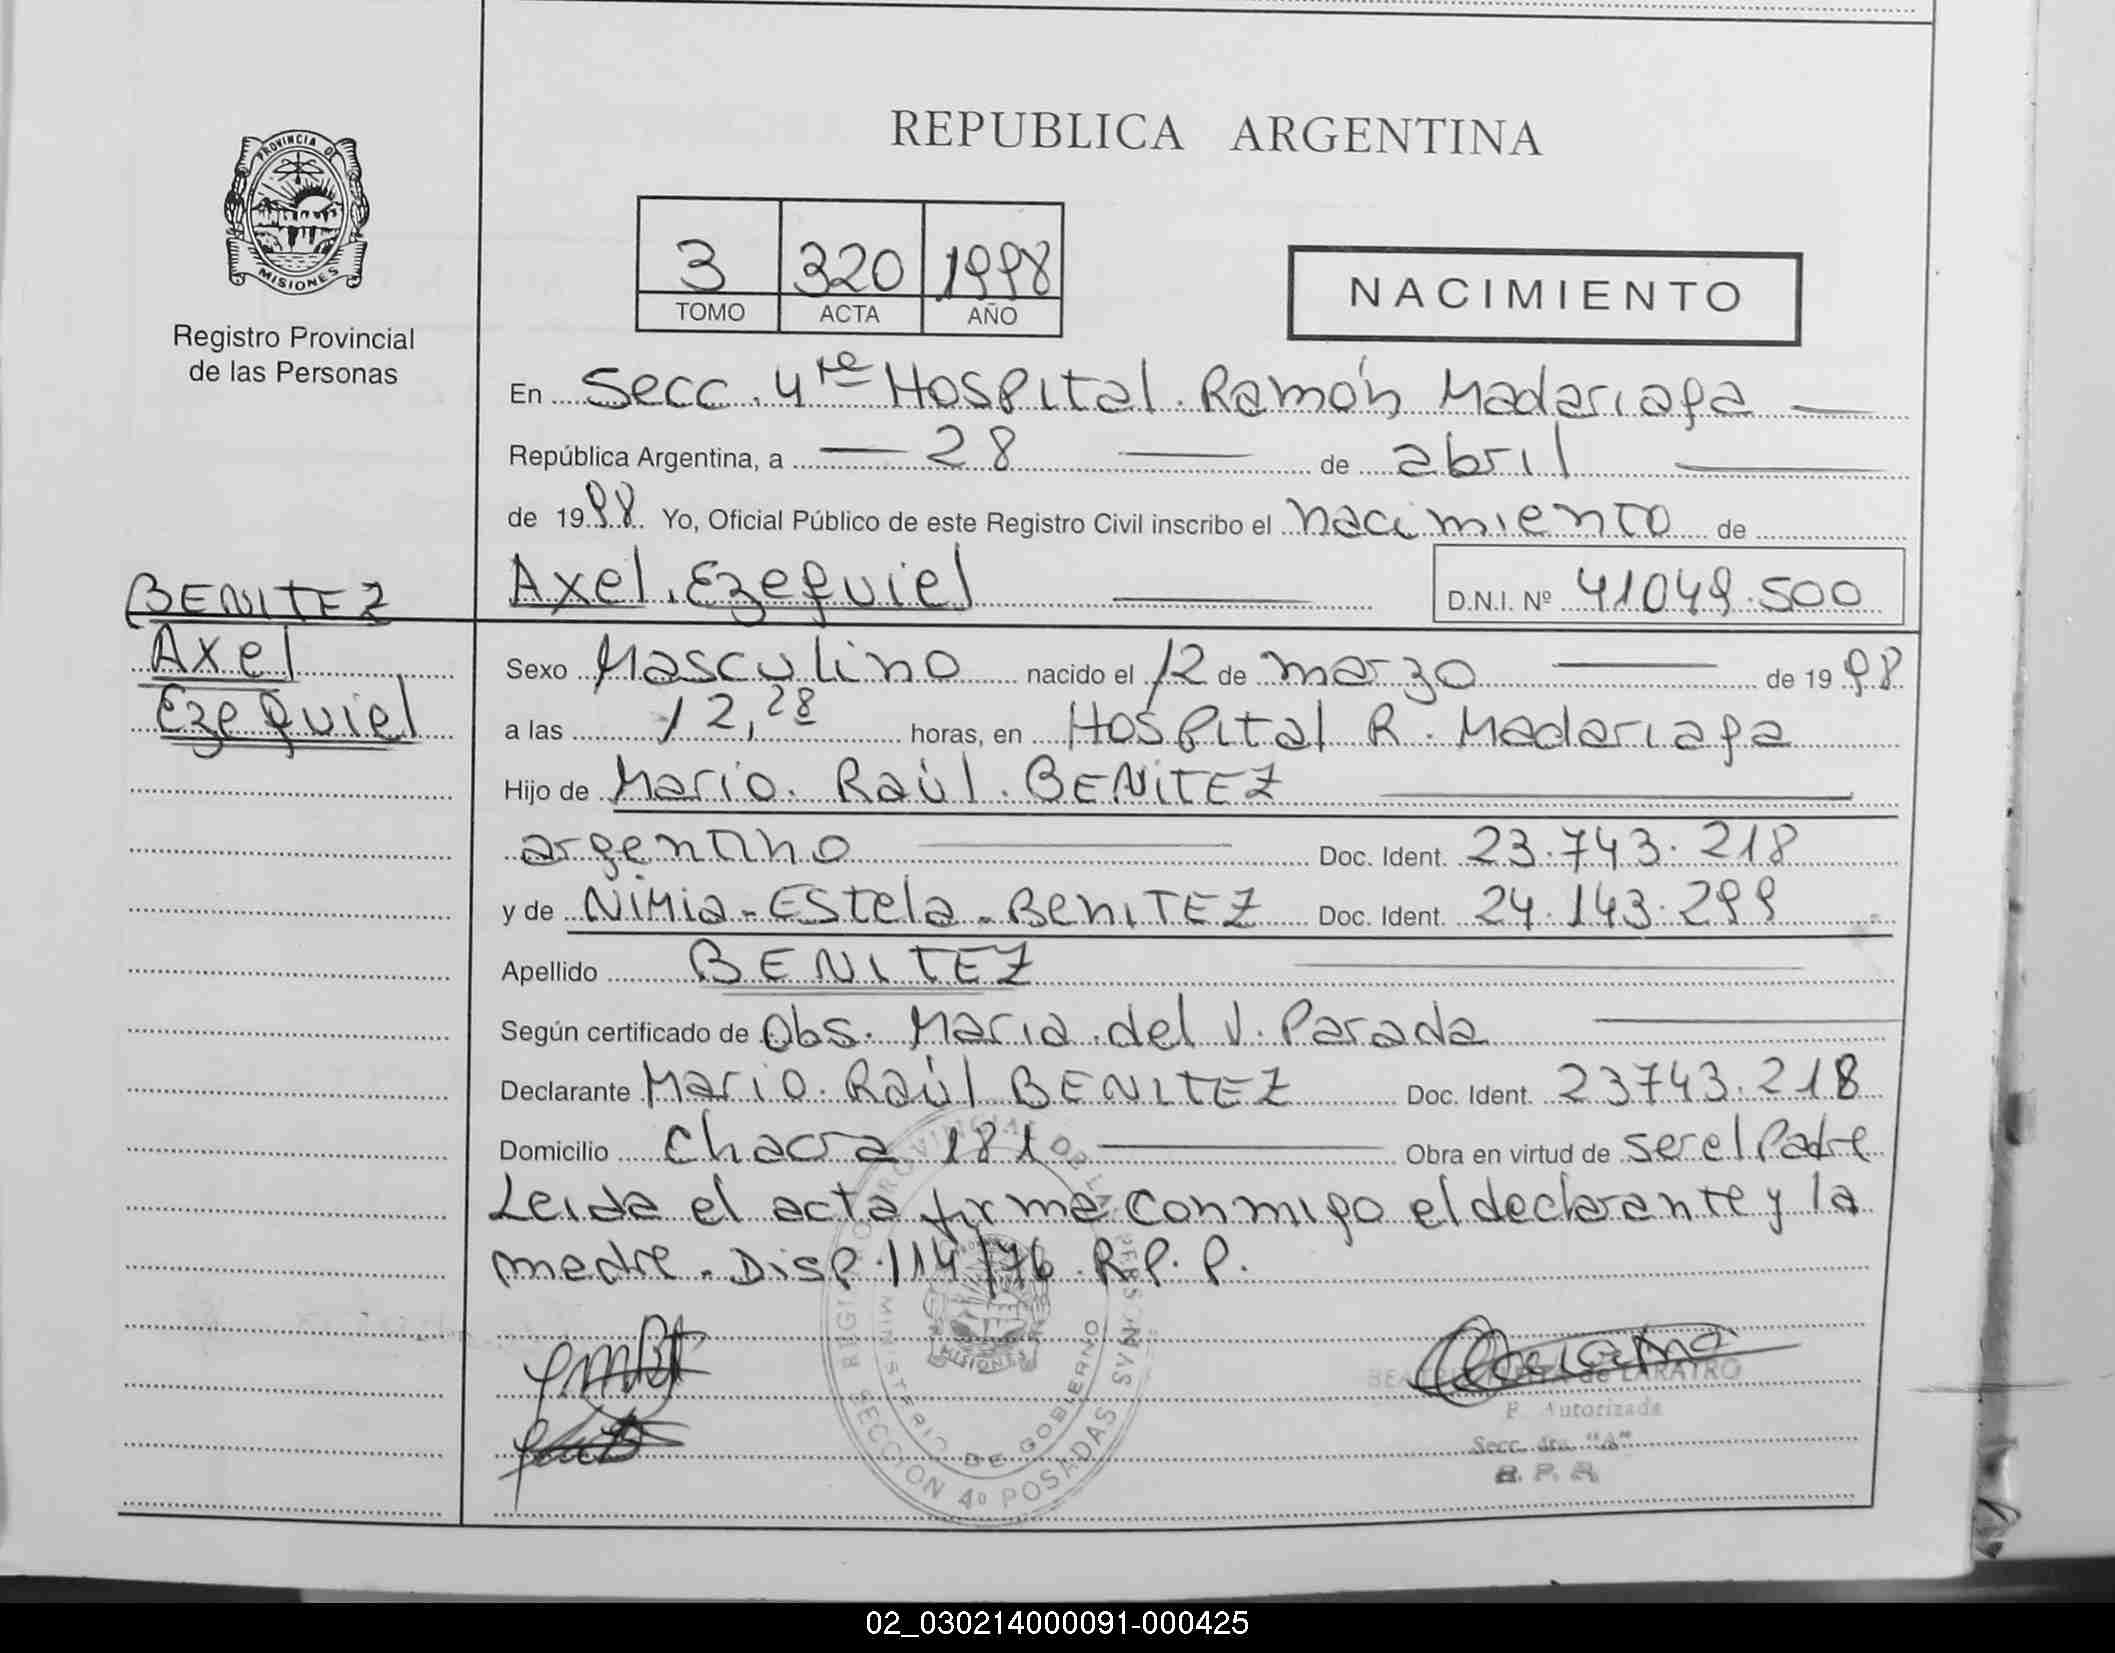 REPUBLICA ARGENTINA
PROVINCIA DE
MISIONES
Registro Provincial
de las Personas
3 320 1998
TOMO ACTA AÑO
NACIMIENTO
En Secc. 4ta Hospital Ramón Madariaga
República Argentina, a 28 de abril
de 1998 Yo, Oficial Público de este Registro Civil inscribo el nacimiento de
Axel Ezequiel D.N.I. Nº 41049.500
BENITEZ
Axel
Ezequiel
Sexo Masculino nacido el 12 de marzo de 1998
a las 12,28 horas, en Hospital R. Madariaga
Hijo de Mario Raúl BENITEZ
argentino Doc. Ident. 23.743.218
y de Nimia Estela BeniTEZ Doc. Ident. 24.143.299
Apellido BENITEZ
Según certificado de Obs. Maria del V. Parada
Declarante Mario Raúl BENITEZ Doc. Ident. 23743.218
Domicilio Chacra 181 Obra en virtud de ser el Padre
Leida el acta firma conmigo el declarante y la
madre. Disp. 114/76 R.P.P.
REGISTRO PROVINCIAL DE LAS PERSONAS
MINISTERIO DE GOBIERNO
MISIONES
SECCION 4º POSADAS
de LARATRO
Autorizada
Secc. 4ta. "A"
02_030214000091-000425